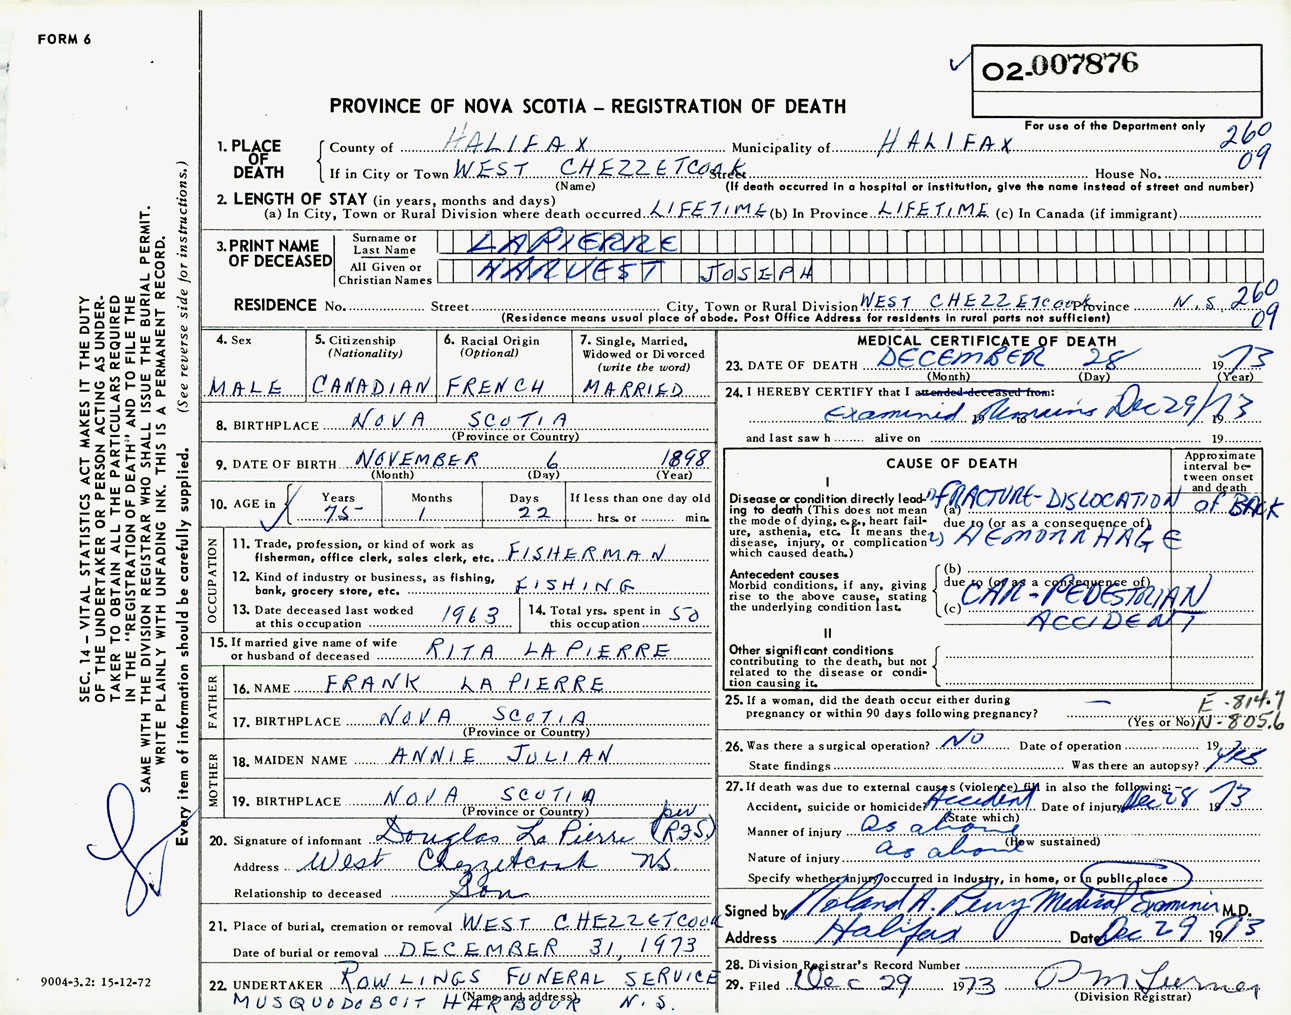 FORM 6
02-007876
PROVINCE OF NOVA SCOTIA – REGISTRATION OF DEATH
For use of the Department only
260
09
1. PLACE OF DEATH
County of HALIFAX Municipality of HALIFAX
If in City or Town WEST CHEZZETCOOK Street House No.
(Name) (If death occurred in a hospital or institution, give the name instead of street and number)
2. LENGTH OF STAY (in years, months and days)
(a) In City, Town or Rural Division where death occurred LIFETIME (b) In Province LIFETIME (c) In Canada (if immigrant)
3. PRINT NAME OF DECEASED
Surname or Last Name LAPIERRE
All Given or Christian Names HARVEST JOSEPH
RESIDENCE No. Street City, Town or Rural Division WEST CHEZZETCOOK Province N.S. 260
(Residence means usual place of abode. Post Office Address for residents in rural parts not sufficient) 09
4. Sex
MALE
5. Citizenship (Nationality)
CANADIAN
6. Racial Origin (Optional)
FRENCH
7. Single, Married, Widowed or Divorced (write the word)
MARRIED
8. BIRTHPLACE NOVA SCOTIA
(Province or Country)
9. DATE OF BIRTH NOVEMBER 6 1898
(Month) (Day) (Year)
10. AGE in Years Months Days If less than one day old
75 1 22 hrs. or min.
OCCUPATION
11. Trade, profession, or kind of work as fisherman, office clerk, sales clerk, etc. FISHERMAN
12. Kind of industry or business, as fishing, bank, grocery store, etc. FISHING
13. Date deceased last worked at this occupation 1963
14. Total yrs. spent in this occupation 50
15. If married give name of wife or husband of deceased RITA LAPIERRE
FATHER
16. NAME FRANK LAPIERRE
17. BIRTHPLACE NOVA SCOTIA
(Province or Country)
MOTHER
18. MAIDEN NAME ANNIE JULIAN
19. BIRTHPLACE NOVA SCOTIA
(Province or Country)
20. Signature of informant Douglas La Pierre per (R.F.S.)
Address West Chezzetcook NS.
Relationship to deceased Son
21. Place of burial, cremation or removal WEST CHEZZETCOOK
Date of burial or removal DECEMBER 31, 1973
22. UNDERTAKER ROWLINGS FUNERAL SERVICE
(Name and address)
MUSQUODOBOIT HARBOUR N.S.
MEDICAL CERTIFICATE OF DEATH
23. DATE OF DEATH DECEMBER 28 1973
(Month) (Day) (Year)
24. I HEREBY CERTIFY that I attended deceased from:
Examined Remains Dec 29/73
19 to 19
and last saw h alive on 19
CAUSE OF DEATH
Approximate interval between onset and death
I
Disease or condition directly leading to death (This does not mean the mode of dying, e.g., heart failure, asthenia, etc. It means the disease, injury, or complication which caused death.)
(a) 1) FRACTURE-DISLOCATION of BACK
due to (or as a consequence of)
2) HEMORRHAGE
Antecedent causes
Morbid conditions, if any, giving rise to the above cause, stating the underlying condition last.
(b)
due to (or as a consequence of)
(c) CAR-PEDESTRIAN
ACCIDENT
II
Other significant conditions
contributing to the death, but not related to the disease or condition causing it.
25. If a woman, did the death occur either during pregnancy or within 90 days following pregnancy? —
(Yes or No)
E-814.7
N-805.6
26. Was there a surgical operation? NO Date of operation 19
State findings Was there an autopsy? Yes
27. If death was due to external causes (violence) fill in also the following:
Accident, suicide or homicide? Accident Date of injury Dec 28 1973
(State which)
Manner of injury As above
(How sustained)
Nature of injury as above
Specify whether injury occurred in industry, in home, or in public place
Signed by Roland A. Perry Medical Examiner M.D.
Address Halifax Date Dec 29 1973
28. Division Registrar's Record Number
29. Filed Dec 29 1973
(Division Registrar)
SEC. 14 – VITAL STATISTICS ACT MAKES IT THE DUTY
OF THE UNDERTAKER OR PERSON ACTING AS UNDER-
TAKER TO OBTAIN ALL THE PARTICULARS REQUIRED
IN THE "REGISTRATION OF DEATH" AND TO FILE THE
SAME WITH THE DIVISION REGISTRAR WHO SHALL ISSUE THE BURIAL PERMIT.
WRITE PLAINLY WITH UNFADING INK. THIS IS A PERMANENT RECORD.
Every item of information should be carefully supplied. (See reverse side for instructions.)
9004-3.2: 15-12-72